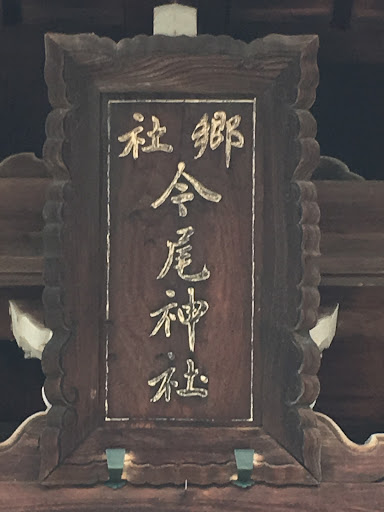 郷社
今尾神社